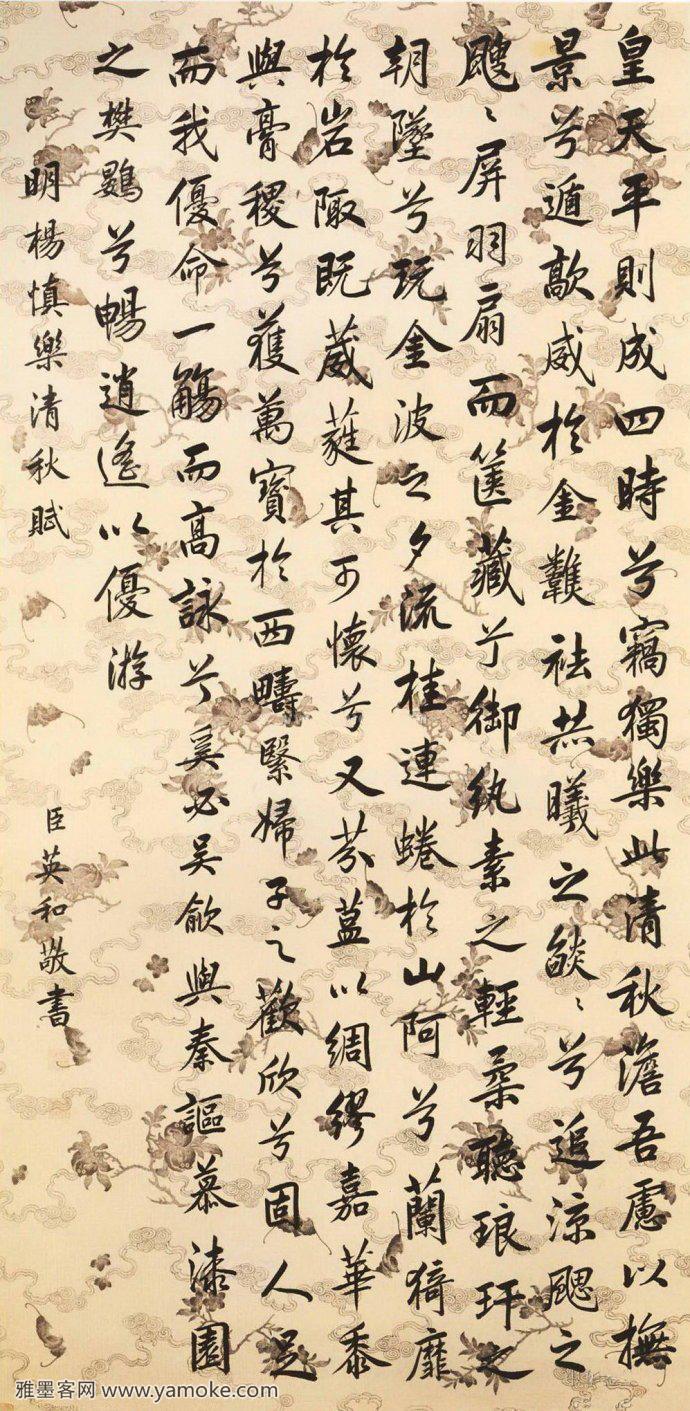 皇天平則成四時兮竊獨樂此清秋澹吾慮以撫
景兮遁歊威於金囏祛炎曦之燄〻兮追涼颸之
颼〻屏羽扇而篋藏兮御紈素之輕柔聽琅玕之
朝墜兮玩金波之夕流桂連蜷於山阿兮蘭猗靡
於岩陬既葳蕤其可懷兮又芬蒀以綢繆嘉華黍
與膏稷兮獲萬寶於西疇緊婦子之歡欣兮固人足
而我優命一觴而高詠兮奚必吳歈與秦謳慕漆園
之樊鷃兮暢逍遙以優游
明楊慎樂清秋賦
臣英和敬書
雅墨客网 www.yamoke.com